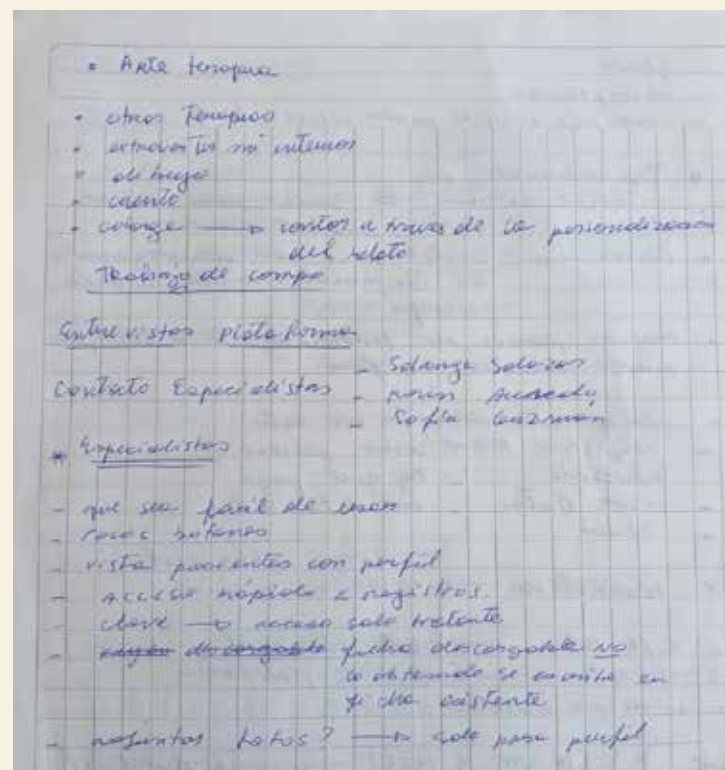 • Arte terapia
• otras Terapias
• extrovertir mi interior
• dibujo
• cuento
• collage → contar a traves de la personalización
del relato
Trabajo de campo
Entrevistas plataforma
Contacto Especialistas
- Solange
-
- Sofía Guzmán
* Especialistas
- que sea facil de usar
- pocos botones
- vista pacientes con perfil
- acceso rápido a registros.
- clave → acceso solo tratante
- ficha descargable NO
lo obtenido se escribe en
ficha existente
- adjuntar fotos? → solo para perfil